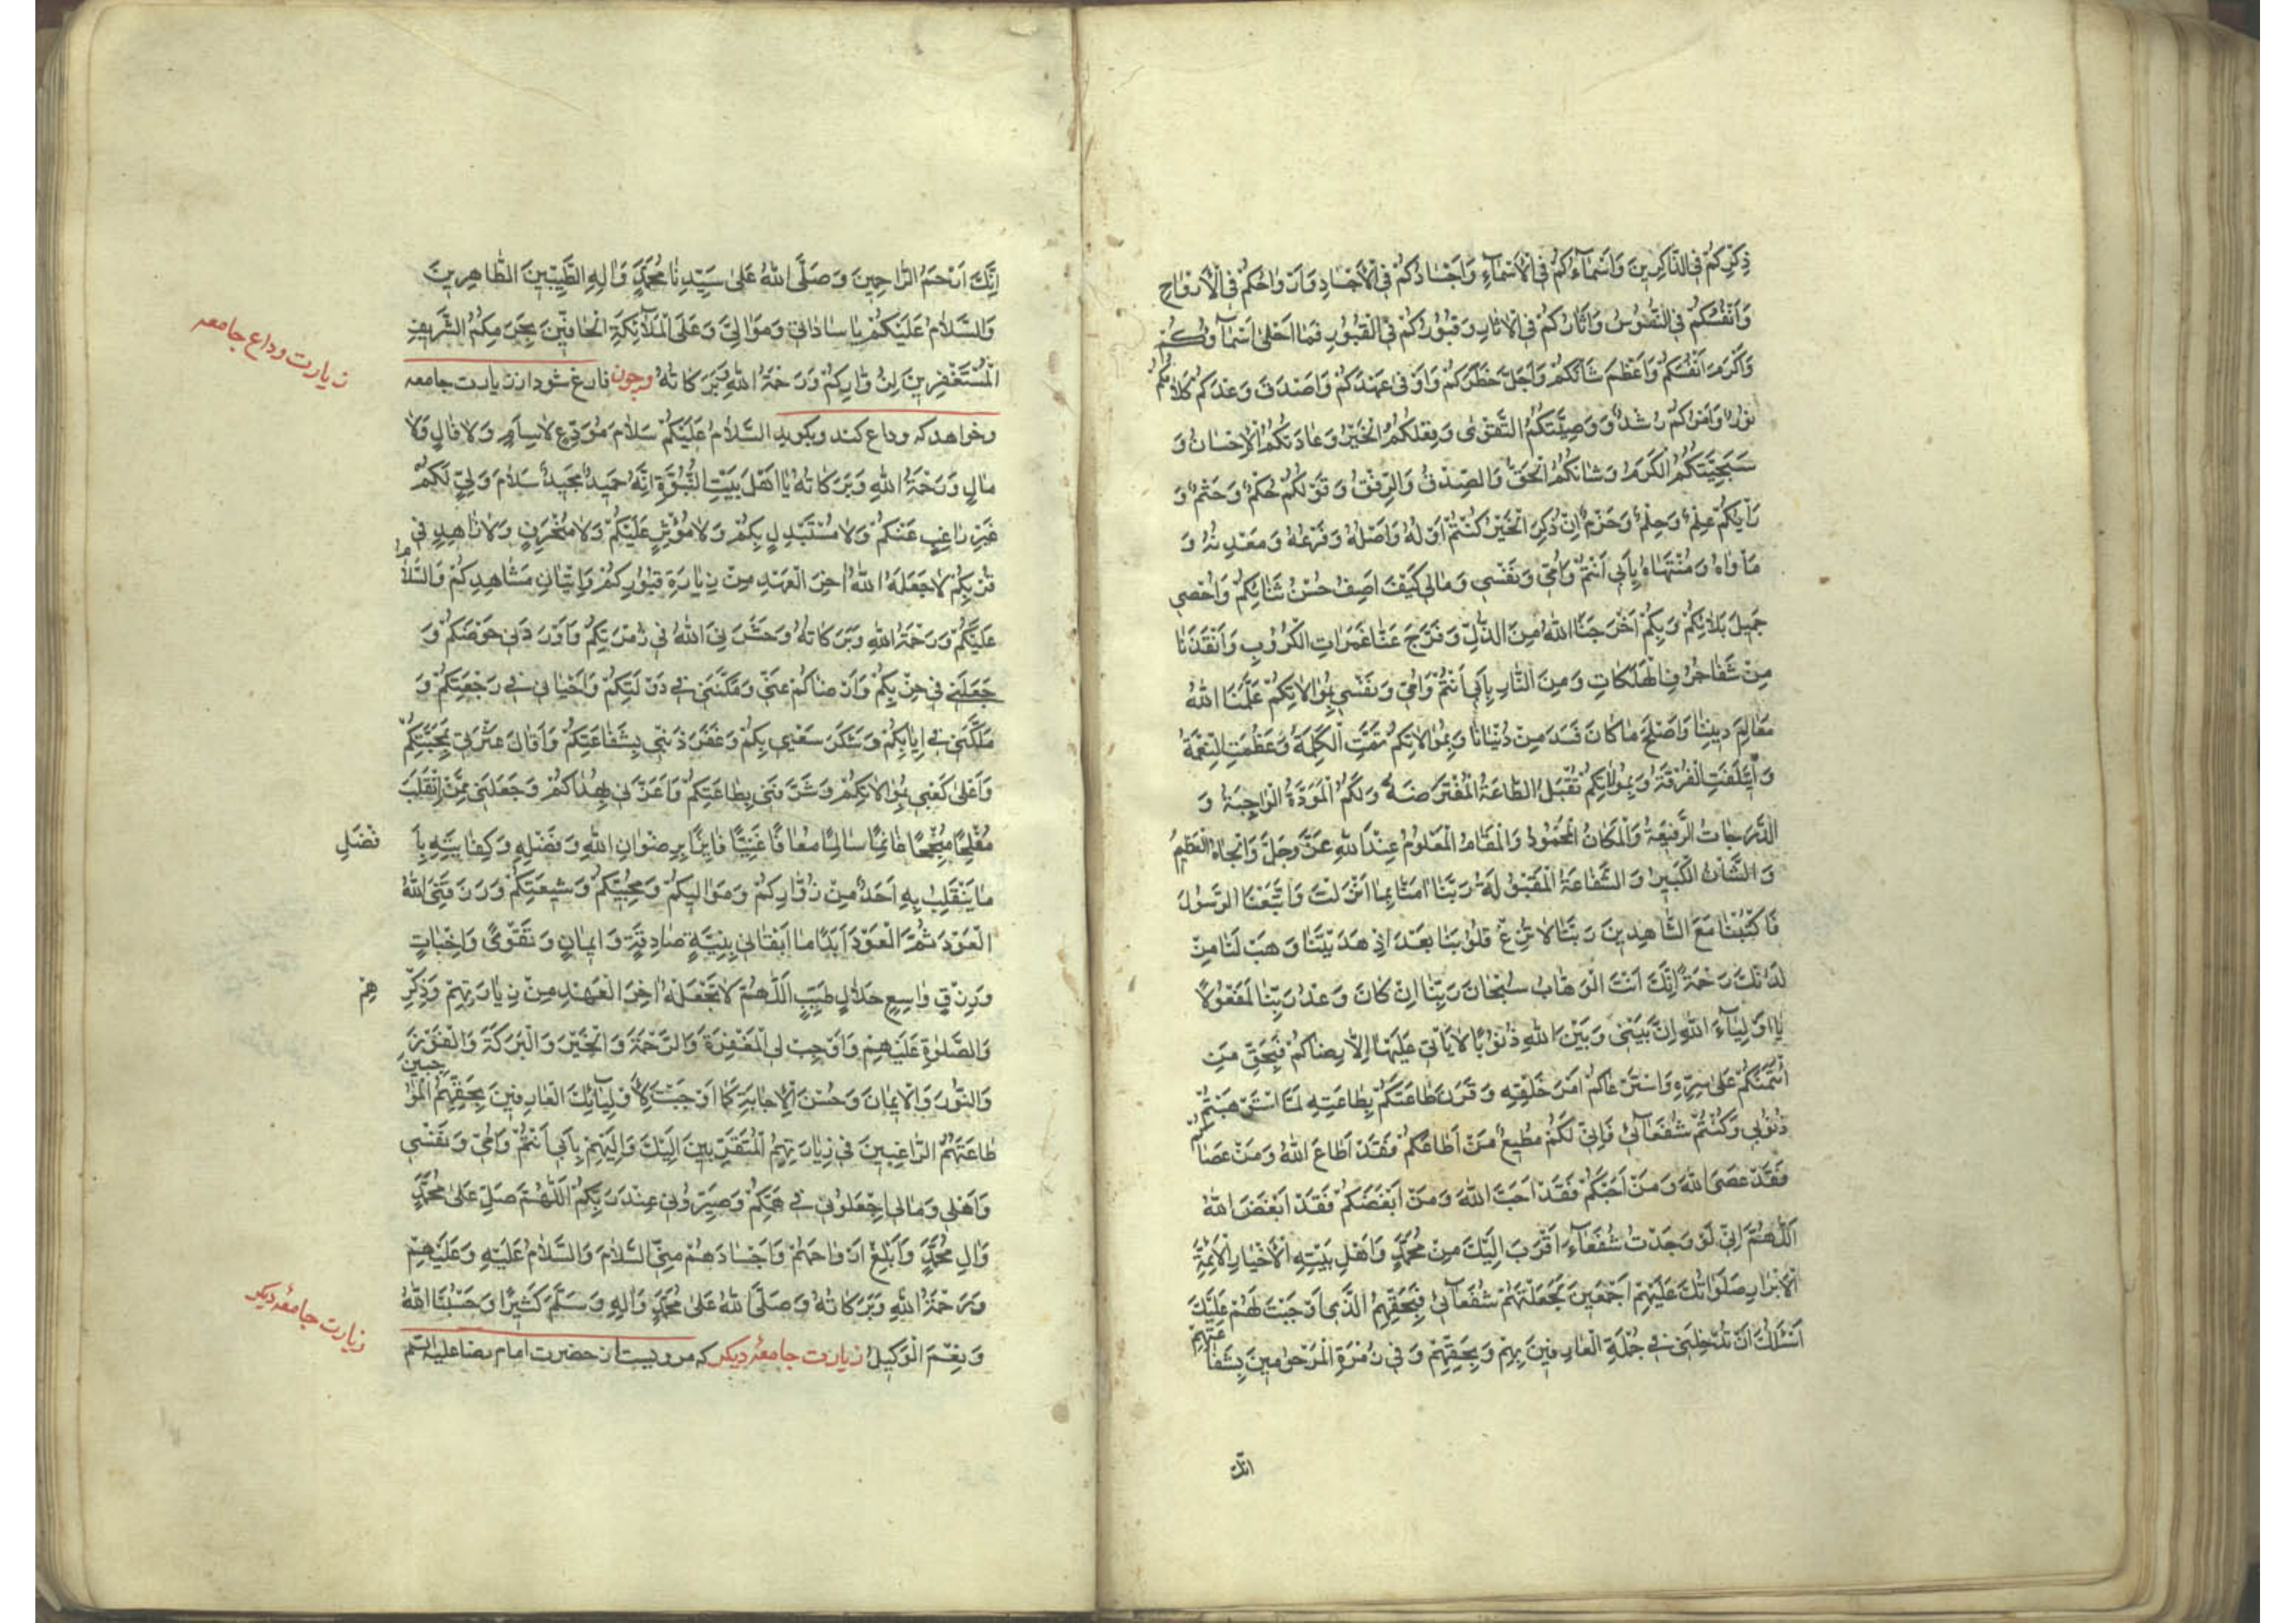 ذِكْرُكُمْ فِي الذَّاكِرِينَ وَاَسْمَآءُكُمْ فِي الْاَسْمَآءِ وَاَجْسَادُكُمْ فِي الْاَجْسَادِ وَاَرْوَاحُكُمْ فِي الْاَرْوَاحِ
وَاَنْفُسُكُمْ فِي النُّفُوسِ وَاٰثَارُكُمْ فِي الْاٰثَارِ وَقُبُورُكُمْ فِي الْقُبُورِ فَمَا اَحْلٰى اَسْمَآؤُكُمْ
وَاَكْرَمَ اَنْفُسَكُمْ وَاَعْظَمَ شَانَكُمْ وَاَجَلَّ خَطَرَكُمْ وَاَوْفٰى عَهْدَكُمْ وَاَصْدَقَ وَعْدَكُمْ كَلَامُكُمْ
نُورٌ وَاَمْرُكُمْ رُشْدٌ وَوَصِيَّتُكُمُ التَّقْوٰى وَفِعْلُكُمُ الْخَيْرُ وَعَادَتُكُمُ الْاِحْسَانُ وَ
سَجِيَّتُكُمُ الْكَرَمُ وَشَانُكُمُ الْحَقُّ وَالصِّدْقُ وَالرِّفْقُ وَقَوْلُكُمْ حُكْمٌ وَحَتْمٌ وَ
رَأْيُكُمْ عِلْمٌ وَحِلْمٌ وَحَزْمٌ اِنْ ذُكِرَ الْخَيْرُ كُنْتُمْ اَوَّلَهُ وَاَصْلَهُ وَفَرْعَهُ وَمَعْدِنَهُ وَ
مَاْوَاهُ وَمُنْتَهَاهُ بِاَبِي اَنْتُمْ وَاُمِّي وَنَفْسِي وَمَالِي كَيْفَ اَصِفُ حُسْنَ ثَنَائِكُمْ وَاُحْصِي
جَمِيلَ بَلَائِكُمْ وَبِكُمْ اَخْرَجَنَا اللّٰهُ مِنَ الذُّلِّ وَفَرَّجَ عَنَّا غَمَرَاتِ الْكُرُوبِ وَاَنْقَذَنَا
مِنْ شَفَا جُرُفِ الْهَلَكَاتِ وَمِنَ النَّارِ بِاَبِي اَنْتُمْ وَاُمِّي وَنَفْسِي بِمُوَالَاتِكُمْ عَلَّمَنَا اللّٰهُ
مَعَالِمَ دِينِنَا وَاَصْلَحَ مَا كَانَ فَسَدَ مِنْ دُنْيَانَا وَبِمُوَالَاتِكُمْ تَمَّتِ الْكَلِمَةُ وَعَظُمَتِ النِّعْمَةُ
وَائْتَلَفَتِ الْفُرْقَةُ وَبِمُوَالَاتِكُمْ تُقْبَلُ الطَّاعَةُ الْمُفْتَرَضَةُ وَلَكُمُ الْمَوَدَّةُ الْوَاجِبَةُ وَ
الدَّرَجَاتُ الرَّفِيعَةُ وَالْمَكَانُ الْمَحْمُودُ وَالْمَقَامُ الْمَعْلُومُ عِنْدَ اللّٰهِ عَزَّ وَجَلَّ وَالْجَاهُ الْعَظِيمُ
وَالشَّاْنُ الْكَبِيرُ وَالشَّفَاعَةُ الْمَقْبُولَةُ رَبَّنَا اٰمَنَّا بِمَا اَنْزَلْتَ وَاتَّبَعْنَا الرَّسُولَ
فَاكْتُبْنَا مَعَ الشَّاهِدِينَ رَبَّنَا لَا تُزِغْ قُلُوبَنَا بَعْدَ اِذْ هَدَيْتَنَا وَهَبْ لَنَا مِنْ
لَدُنْكَ رَحْمَةً اِنَّكَ اَنْتَ الْوَهَّابُ سُبْحَانَ رَبِّنَا اِنْ كَانَ وَعْدُ رَبِّنَا لَمَفْعُولًا
يَا اَوْلِيَآءَ اللّٰهِ اِنَّ بَيْنِي وَبَيْنَ اللّٰهِ ذُنُوبًا لَا يَاْتِي عَلَيْهَا اِلَّا رِضَاكُمْ فَبِحَقِّ مَنِ
ائْتَمَنَكُمْ عَلٰى سِرِّهِ وَاسْتَرْعَاكُمْ اَمْرَ خَلْقِهِ وَقَرَنَ طَاعَتَكُمْ بِطَاعَتِهِ لَمَّا اسْتَوْهَبْتُمْ
ذُنُوبِي وَكُنْتُمْ شُفَعَآئِي فَاِنِّي لَكُمْ مُطِيعٌ مَنْ اَطَاعَكُمْ فَقَدْ اَطَاعَ اللّٰهَ وَمَنْ عَصَاكُمْ
فَقَدْ عَصَى اللّٰهَ وَمَنْ اَحَبَّكُمْ فَقَدْ اَحَبَّ اللّٰهَ وَمَنْ اَبْغَضَكُمْ فَقَدْ اَبْغَضَ اللّٰهَ
اَللّٰهُمَّ اِنِّي لَوْ وَجَدْتُ شُفَعَآءَ اَقْرَبَ اِلَيْكَ مِنْ مُحَمَّدٍ وَاَهْلِ بَيْتِهِ الْاَخْيَارِ الْاَئِمَّةِ
الْاَبْرَارِ صَلَوَاتُكَ عَلَيْهِمْ اَجْمَعِينَ لَجَعَلْتُهُمْ شُفَعَآئِي فَبِحَقِّهِمُ الَّذِي اَوْجَبْتَ لَهُمْ عَلَيْكَ
اَسْئَلُكَ اَنْ تُدْخِلَنِي فِي جُمْلَةِ الْعَارِفِينَ بِهِمْ وَبِحَقِّهِمْ وَفِي زُمْرَةِ الْمَرْحُومِينَ بِشَفَاعَتِهِمْ
انك
اِنَّكَ اَرْحَمُ الرَّاحِمِينَ وَصَلَّى اللّٰهُ عَلٰى سَيِّدِنَا مُحَمَّدٍ وَاٰلِهِ الطَّيِّبِينَ الطَّاهِرِينَ
وَالسَّلَامُ عَلَيْكُمْ يَا سَادَاتِي وَمَوَالِيَّ وَعَلَى الْمَلَآئِكَةِ الْحَافِّينَ بِحَرَمِكُمُ الشَّرِيفِ
زیارت وداع جامعه
الْمُسْتَغْفِرِينَ لِزُوَّارِكُمْ وَرَحْمَةُ اللّٰهِ وَبَرَكَاتُهُ وچون فارغ شود از زیارت جامعه
وخواهد که وداع کند وبگوید السَّلَامُ عَلَيْكُمْ سَلَامَ مُوَدِّعٍ لَا سَئِمٍ وَلَا قَالٍ وَلَا
مَالٍ وَرَحْمَةُ اللّٰهِ وَبَرَكَاتُهُ يَا اَهْلَ بَيْتِ النُّبُوَّةِ اِنَّهُ حَمِيدٌ مَجِيدٌ سَلَامَ وَلِيٍّ لَكُمْ
غَيْرِ رَاغِبٍ عَنْكُمْ وَلَا مُسْتَبْدِلٍ بِكُمْ وَلَا مُؤْثِرٍ عَلَيْكُمْ وَلَا مُنْحَرِفٍ وَلَا زَاهِدٍ فِي
قُرْبِكُمْ لَا جَعَلَهُ اللّٰهُ اٰخِرَ الْعَهْدِ مِنْ زِيَارَةِ قُبُورِكُمْ وَاِتْيَانِ مَشَاهِدِكُمْ وَالسَّلَامُ
عَلَيْكُمْ وَرَحْمَةُ اللّٰهِ وَبَرَكَاتُهُ وَحَشَرَنِيَ اللّٰهُ فِي زُمْرَتِكُمْ وَاَوْرَدَنِي حَوْضَكُمْ وَ
جَعَلَنِي فِي حِزْبِكُمْ وَاَرْضَاكُمْ عَنِّي وَمَكَّنَنِي فِي دَوْلَتِكُمْ وَاَحْيَانِي فِي رَجْعَتِكُمْ وَ
مَلَّكَنِي فِي اَيَّامِكُمْ وَشَكَرَ سَعْيِي بِكُمْ وَغَفَرَ ذَنْبِي بِشَفَاعَتِكُمْ وَاَقَالَ عَثْرَتِي بِمَحَبَّتِكُمْ
وَاَعْلٰى كَعْبِي بِمُوَالَاتِكُمْ وَشَرَّفَنِي بِطَاعَتِكُمْ وَاَعَزَّنِي بِهُدَاكُمْ وَجَعَلَنِي مِمَّنْ اِنْقَلَبَ
مُفْلِحًا مُنْجِحًا غَانِمًا سَالِمًا مُعَافًا غَنِيًّا فَايِزًا بِرِضْوَانِ اللّٰهِ وَفَضْلِهِ وَكِفَايَتِهِ بِاَفْضَلِ
مَا يَنْقَلِبُ بِهِ اَحَدٌ مِنْ زُوَّارِكُمْ وَمَوَالِيكُمْ وَمُحِبِّيكُمْ وَشِيعَتِكُمْ وَرَزَقَنِيَ اللّٰهُ
الْعَوْدَ ثُمَّ الْعَوْدَ اَبَدًا مَا اَبْقَانِي بِنِيَّةٍ صَادِقَةٍ وَاِيمَانٍ وَتَقْوًى وَاِخْبَاتٍ
وَرِزْقٍ وَاسِعٍ حَلَالٍ طَيِّبٍ اَللّٰهُمَّ لَا تَجْعَلْهُ اٰخِرَ الْعَهْدِ مِنْ زِيَارَتِهِمْ وَذِكْرِهِمْ
وَالصَّلٰوةِ عَلَيْهِمْ وَاَوْجِبْ لِي الْمَغْفِرَةَ وَالرَّحْمَةَ وَالْخَيْرَ وَالْبَرَكَةَ وَالْفَوْزَ
وَالنُّورَ وَالْاِيمَانَ وَحُسْنَ الْاِجَابَةِ كَمَا اَوْجَبْتَ لِاَوْلِيَآئِكَ الْعَارِفِينَ بِحَقِّهِمُ الْمُوجِبِينَ
طَاعَتَهُمُ الرَّاغِبِينَ فِي زِيَارَتِهِمُ الْمُتَقَرِّبِينَ اِلَيْكَ وَاِلَيْهِمْ بِاَبِي اَنْتُمْ وَاُمِّي وَنَفْسِي
وَاَهْلِي وَمَالِي اجْعَلُونِي فِي هَمِّكُمْ وَصَيِّرُونِي عِنْدَ رَبِّكُمْ اَللّٰهُمَّ صَلِّ عَلٰى مُحَمَّدٍ
وَاٰلِ مُحَمَّدٍ وَاَبْلِغْ اَرْوَاحَهُمْ وَاَجْسَادَهُمْ مِنِّي السَّلَامَ وَالسَّلَامُ عَلَيْهِ وَعَلَيْهِمْ
وَرَحْمَةُ اللّٰهِ وَبَرَكَاتُهُ وَصَلَّى اللّٰهُ عَلٰى مُحَمَّدٍ وَاٰلِهِ وَسَلَّمَ كَثِيرًا وَحَسْبُنَا اللّٰهُ
زیارت جامعهٔ دیگر
وَنِعْمَ الْوَكِيلُ زیارت جامعهٔ دیگر که مرویست از حضرت امام رضا علیه السلم